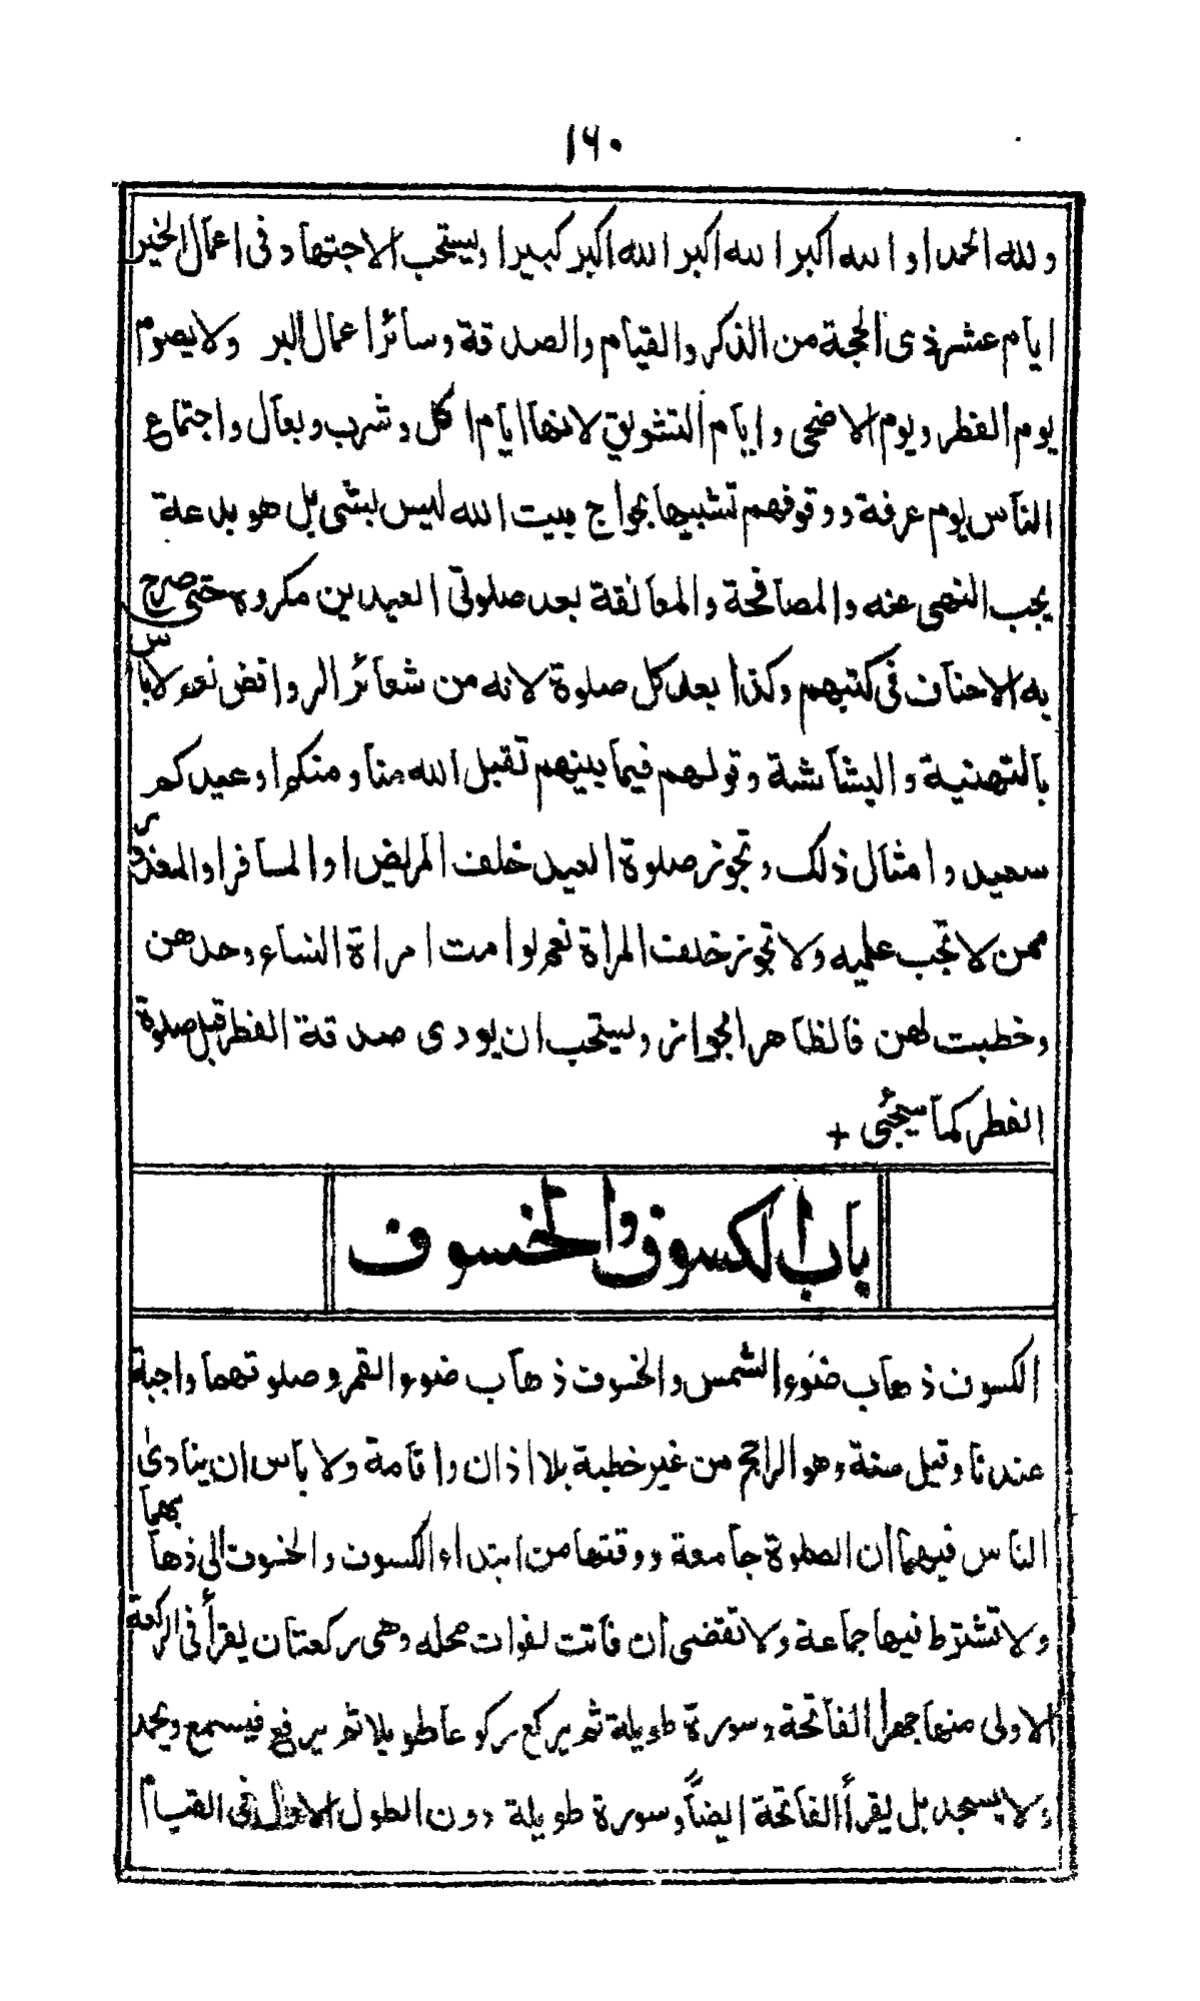 ١٦٠
ولله الحمد او الله اكبر الله اكبر الله اكبر كبيرا ويستحب الاجتهاد فى اعمال الخير
ايام عشر ذى الحجة من الذكر والقيام والصدقة وسائر اعمال البر ولا يصوم
يوم الفطر ويوم الاضحى وايام التشريق لانها ايام اكل وشرب وبعال واجتماع
الناس يوم عرفة ووقوفهم تشبيها بحواج بيت الله ليس بشى بل هو بدعة
يجب النهى عنه والمصافحة والمعانقة بعد صلوتى العيدين مكروه حتى صرح
به الاحناف فى كتبهم وكذا بعد كل صلوة لانه من شعائر الروافض نعم لا باس
بالتهنية والبشاشة وقولهم فيما بينهم تقبل الله منا ومنكم او عيدكم
سعيد وامثال ذلك وتجوز صلوة العيد خلف المريض او المسافر او المعذور
ممن لا تجب عليه ولا تجوز خلف المراة نعم لو امت امراة النساء وحدهن
وخطبت لهن فالظاهر الجواز ويستحب ان يودى صدقة الفطر قبل صلوة
الفطر كما سيجئى +
باب الكسوف والخسوف
الكسوف ذهاب ضوء الشمس والخسوف ذهاب ضوء القمر وصلوتهما واجبة
عندنا وقيل سنة وهو الراجح من غير خطبة بلا اذان واقامة ولا باس ان ينادى
الناس فيهما ان الصلوة جامعة ووقتها من ابتداء الكسوف والخسوف الى ذهابهما
ولا تشترط فيها جماعة ولا تقضى ان فاتت لفوات محله وهى ركعتان يقرأ فى الركعة
الاولى منها جهرا الفاتحة وسورة طويلة ثم يركع ركوعا طويلا ثم يرفع فيسمع ويحمد
ولا يسجد بل يقرأ الفاتحة ايضاً وسورة طويلة دون الطول الاول فى القيام